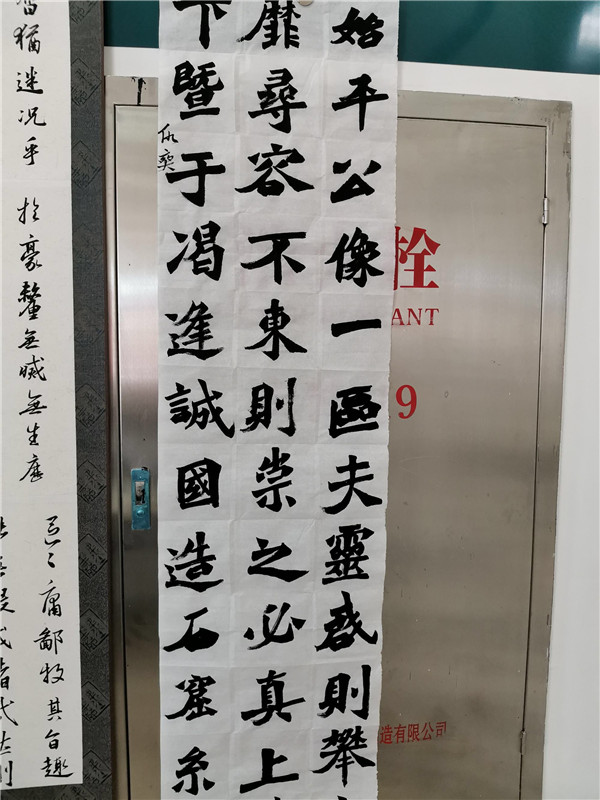 始平公像一區夫靈感則攀
靡尋容不東則崇之必真上
下暨于渴逢誠國造石窟系
智猶迷况乎
於豪釐無滅無生歷
區區庸鄙投其旨趣
栓
ANT
9
造有限公司